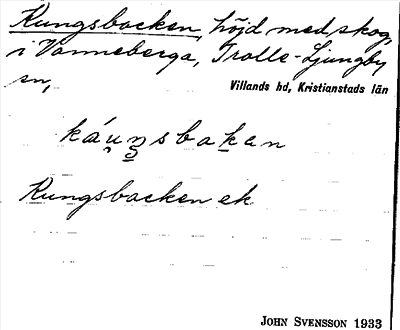 Kungsbacken, höjd med skog,
i Vanneberga, Trolle-Ljungby
sn,
Villands hd, Kristianstads län
káu̯ŋsbakan
Kungsbacken ek
JOHN SVENSSON 1933